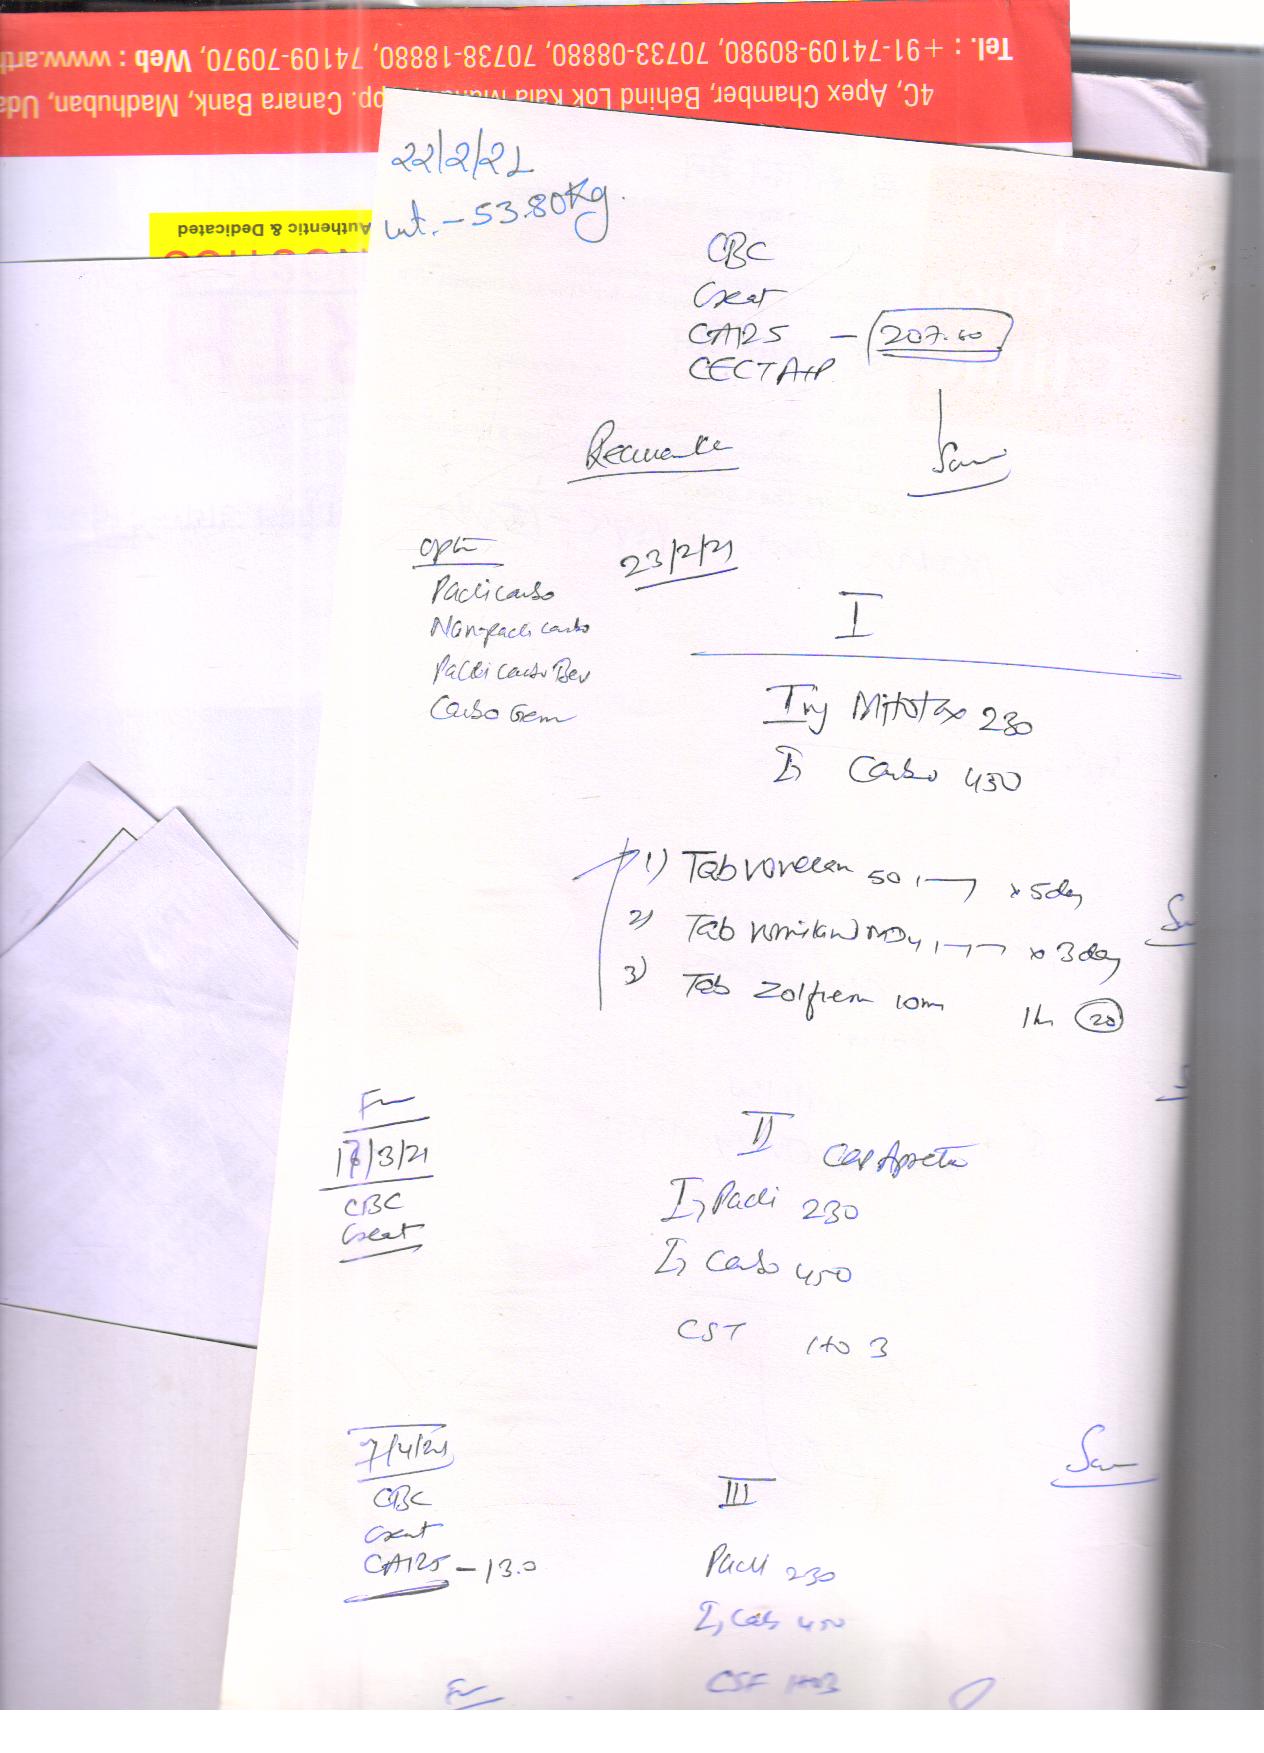 Tel. : +91-74109-80980, 70733-08880, 70738-18880, 74109-70970, Web : www.arth
4C, Apex Chamber, Behind Lok Kala pp. Canara Bank, Madhuban, Uda
Authentic & Dedicated
22/2/21
wt. - 53.80Kg.
CBC
Creat
CA125 - 207.60
CECT A+P
Recurrence
23/2/21
Pacli carbo
Nan-pacli carbo
Pacli carbo Bev
Carbo Gem
I
Inj Mitotax 230
Carbo 450
1) Tab 50 x 5day
2) Tab MD4 x 3day
3) Tab 10m 1h 20
17/3/21
CBC
Creat
II
Pacli 230
Carbo 450
CST 1 to 3
7/4/21
CBC
Creat
CA125 - 13.0
III
Pacli 230
Carb 450
1 to 3